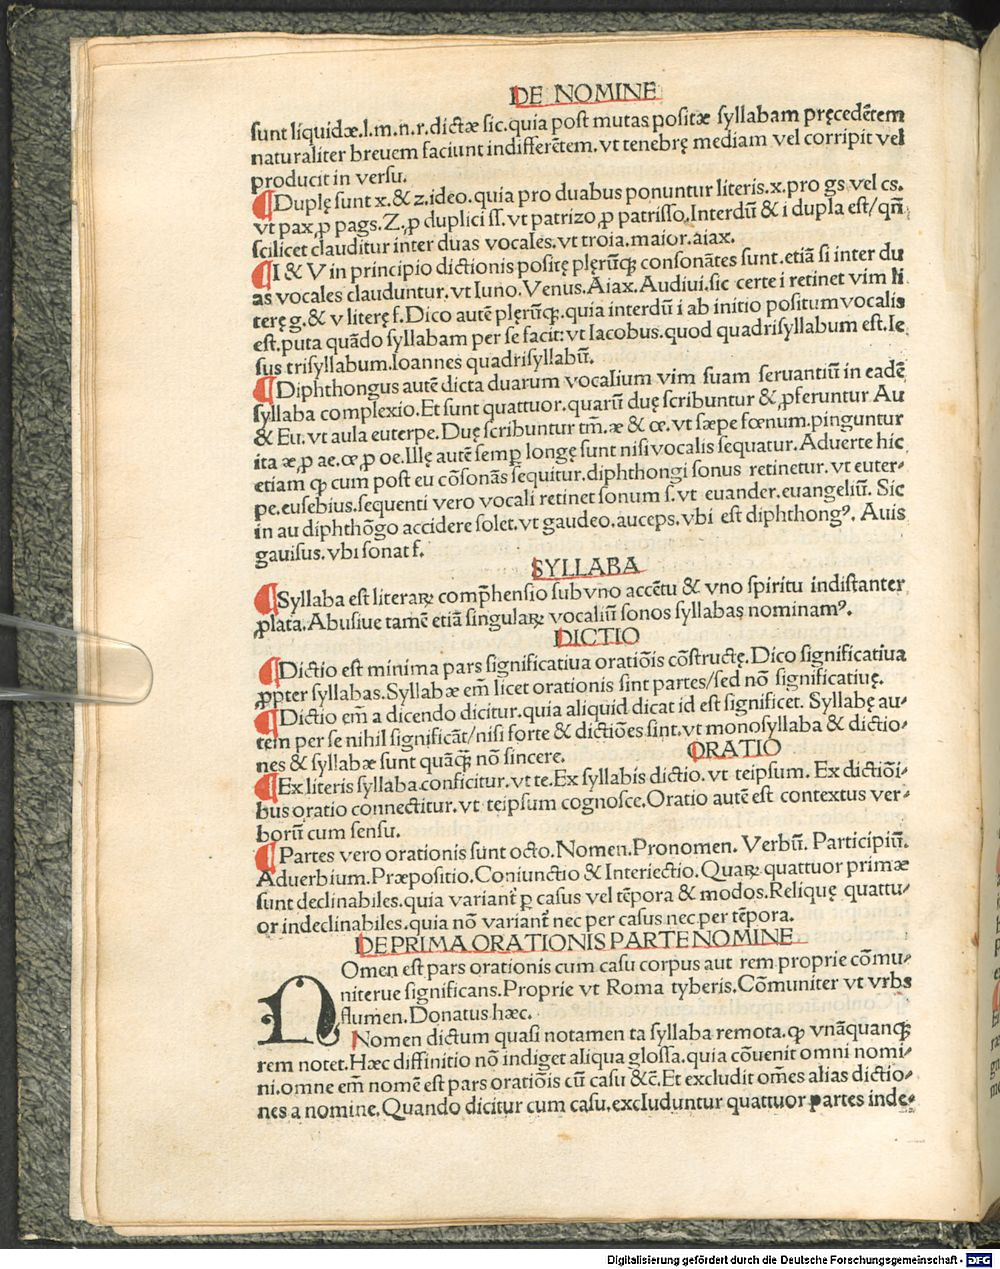 DE NOMINE
sunt liquidæ.l.m.n.r.dictæ sic.quia post mutas positæ syllabam pręcedẽtem
naturaliter breuem faciunt indifferẽtem.vt tenebrę mediam vel corripit vel
producit in versu.
¶Duplę sunt x.& z.ideo.quia pro duabus ponuntur literis.x.pro gs vel cs.
vt pax,ꝓ pags.Z.ꝓ duplici ſſ.vt patrizo,ꝓ patriſſo.Interdũ & i dupla est/qñ
scilicet clauditur inter duas vocales.vt troia.maior.aiax.
¶I & V in principio dictionis positę plęrũꝗ consonãtes sunt.etiã si inter du
as vocales clauduntur.vt Iuno.Venus.Aiax.Audiui.sic certe i retinet vim li
terę g.& v literę f.Dico autẽ plęrũꝗ.quia interdũ i ab initio positum vocalis
est.puta quãdo syllabam per se facit: vt Iacobus.quod quadrisyllabum est.Ie
sus trisyllabum.Ioannes quadrisyllabũ.
¶Diphthongus autẽ dicta duarum vocalium vim suam seruantiũ in eadẽ
syllaba complexio.Et sunt quattuor.quarũ duę scribuntur &,ꝓferuntur Au
& Eu.vt aula euterpe.Duę scribuntur tm̃.æ & œ.vt sæpe fœnum.pinguntur
ita æ,ꝓ ae.œ,ꝓ oe.Illę autẽ semꝑ longę sunt nisi vocalis sequatur.Aduerte hic
etiam ꝙ cum post eu cõsonãs sequitur.diphthongi sonus retinetur.vt euter⸗
pe.eusebius.sequenti vero vocali retinet sonum f.vt euander.euangeliũ. Sic
in au diphthõgo accidere solet.vt gaudeo.auceps.vbi est diphthongꝰ. Auis
gauisus.vbi sonat f.
SYLLABA
¶Syllaba est literaꝝ comp̃hensio sub vno accẽtu & vno spiritu indistanter
ꝓlata.Abusiue tamẽ etiã singulaꝝ vocaliũ sonos syllabas nominamꝰ.
DICTIO
¶Dictio est minima pars significatiua oratiõis cõstructę.Dico significatiua
ꝓpter syllabas.Syllabæ em̃ licet orationis sint partes/sed nõ significatiuę.
¶Dictio em̃ a dicendo dicitur.quia aliquid dicat id est significet. Syllabę au⸗
tem per se nihil significãt/nisi forte & dictiões sint.vt monosyllaba & dictio⸗
nes & syllabæ sunt quãꝗ̃ nõ sincere.
ORATIO
¶Ex literis syllaba conficitur.vt te.Ex syllabis dictio.vt teipsum. Ex dictiõi⸗
bus oratio connectitur.vt teipsum cognosce.Oratio autẽ est contextus ver⸗
borũ cum sensu.
¶Partes vero orationis sunt octo.Nomen.Pronomen. Verbũ. Participiũ.
Aduerbium.Præpositio.Coniunctio & Interiectio.Quaꝝ quattuor primæ
sunt declinabiles.quia variant̃ ꝑ casus vel tẽpora & modos.Reliquę quattu⸗
or indeclinabiles.quia nõ variant̃ nec per casus nec per tẽpora.
DE PRIMA ORATIONIS PARTE NOMINE
NOmen est pars orationis cum casu corpus aut rem proprie cõmu⸗
niterue significans.Proprie vt Roma tyberis.Cõmuniter vt vrbs
flumen.Donatus hæc.
Nomen dictum quasi notamen ta syllaba remota.ꝙ vnãquanꝗ
rem notet.Hæc diffinitio nõ indiget aliqua glossa.quia cõuenit omni nomi⸗
ni.omne em̃ nomẽ est pars oratiõis cũ casu &c̃.Et excludit om̃es alias dictio⸗
nes a nomine.Quando dicitur cum casu.excluduntur quattuor partes inde⸗
Digitalisierung gefördert durch die Deutsche Forschungsgemeinschaft - DFG